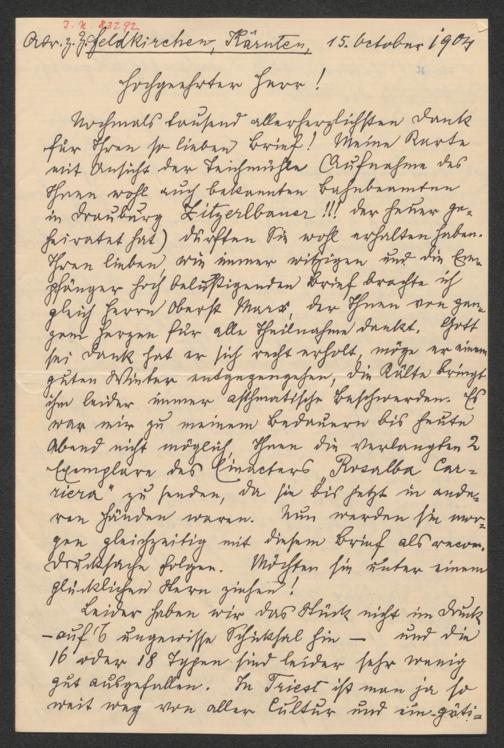 J. N. 83292
Adr. z. Z. Feldkirchen, Kärnten, 15. October 1904
Hochgeehrter Herr!
Nochmals tausend allerherzlichsten Dank
für Ihren so lieben Brief! Meine Karte
mit Ansicht der Teichmühle (Aufnahme des
Ihnen wohl auch bekannten Bahnbeamten
in Drauburg Zitzerlbauer!!! der heuer ge-
heiratet hat) dürften Sie wohl erhalten haben.
Ihren lieben, wie immer witzigen und die Em-
pfänger hoch belustigenden Brief brachte ich
gleich Herrn Oberst Marx, der Ihnen von gan-
zem Herzen für alle Theilnahme dankt. Gott
sei Dank hat er sich recht erholt, möge er einem
guten Winter entgegengehen, die Kälte bringt
ihm leider immer asthmatische Beschwerden. Es
war mir zu meinem Bedauern bis heute
Abend nicht möglich Ihnen die verlangten 2
Exemplare des Einacters „Rosalba Car-
riera" zu senden, da sie bis jetzt in ande-
ren Händen waren. Nun werden sie mor-
gen gleichzeitig mit diesem Brief als recom.
Drucksache folgen. Möchten sie unter einem
glücklichen Stern ziehen!
Leider haben wir das Stück nicht im Druck
– auf's ungewisse Schiksal hin – und die
16 oder 18 Typen sind leider sehr wenig
gut ausgefallen. In Triest ist man ja so
weit weg von aller Cultur und